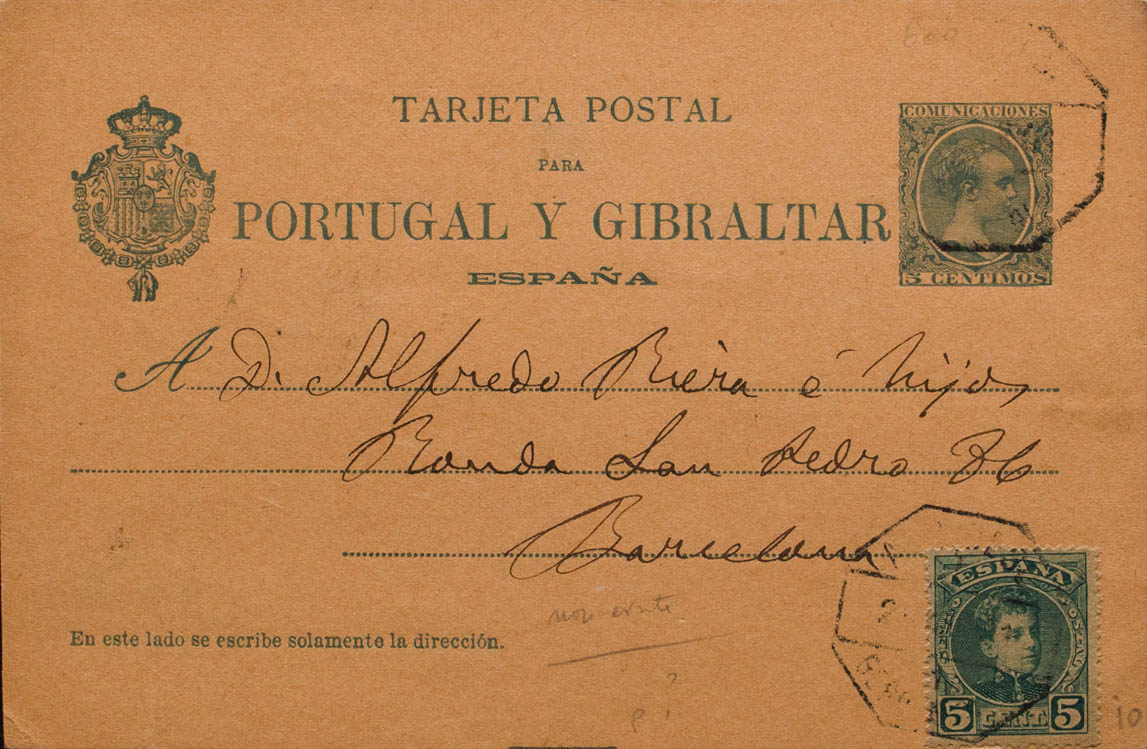 TARJETA POSTAL
PARA
PORTUGAL Y GIBRALTAR
ESPAÑA
COMUNICACIONES
5 CENTIMOS
A D. Alfredo Riera é hijos
Ronda San Pedro 36
Barcelona
En este lado se escribe solamente la dirección.
ESPAÑA
5 CENT. 5
10